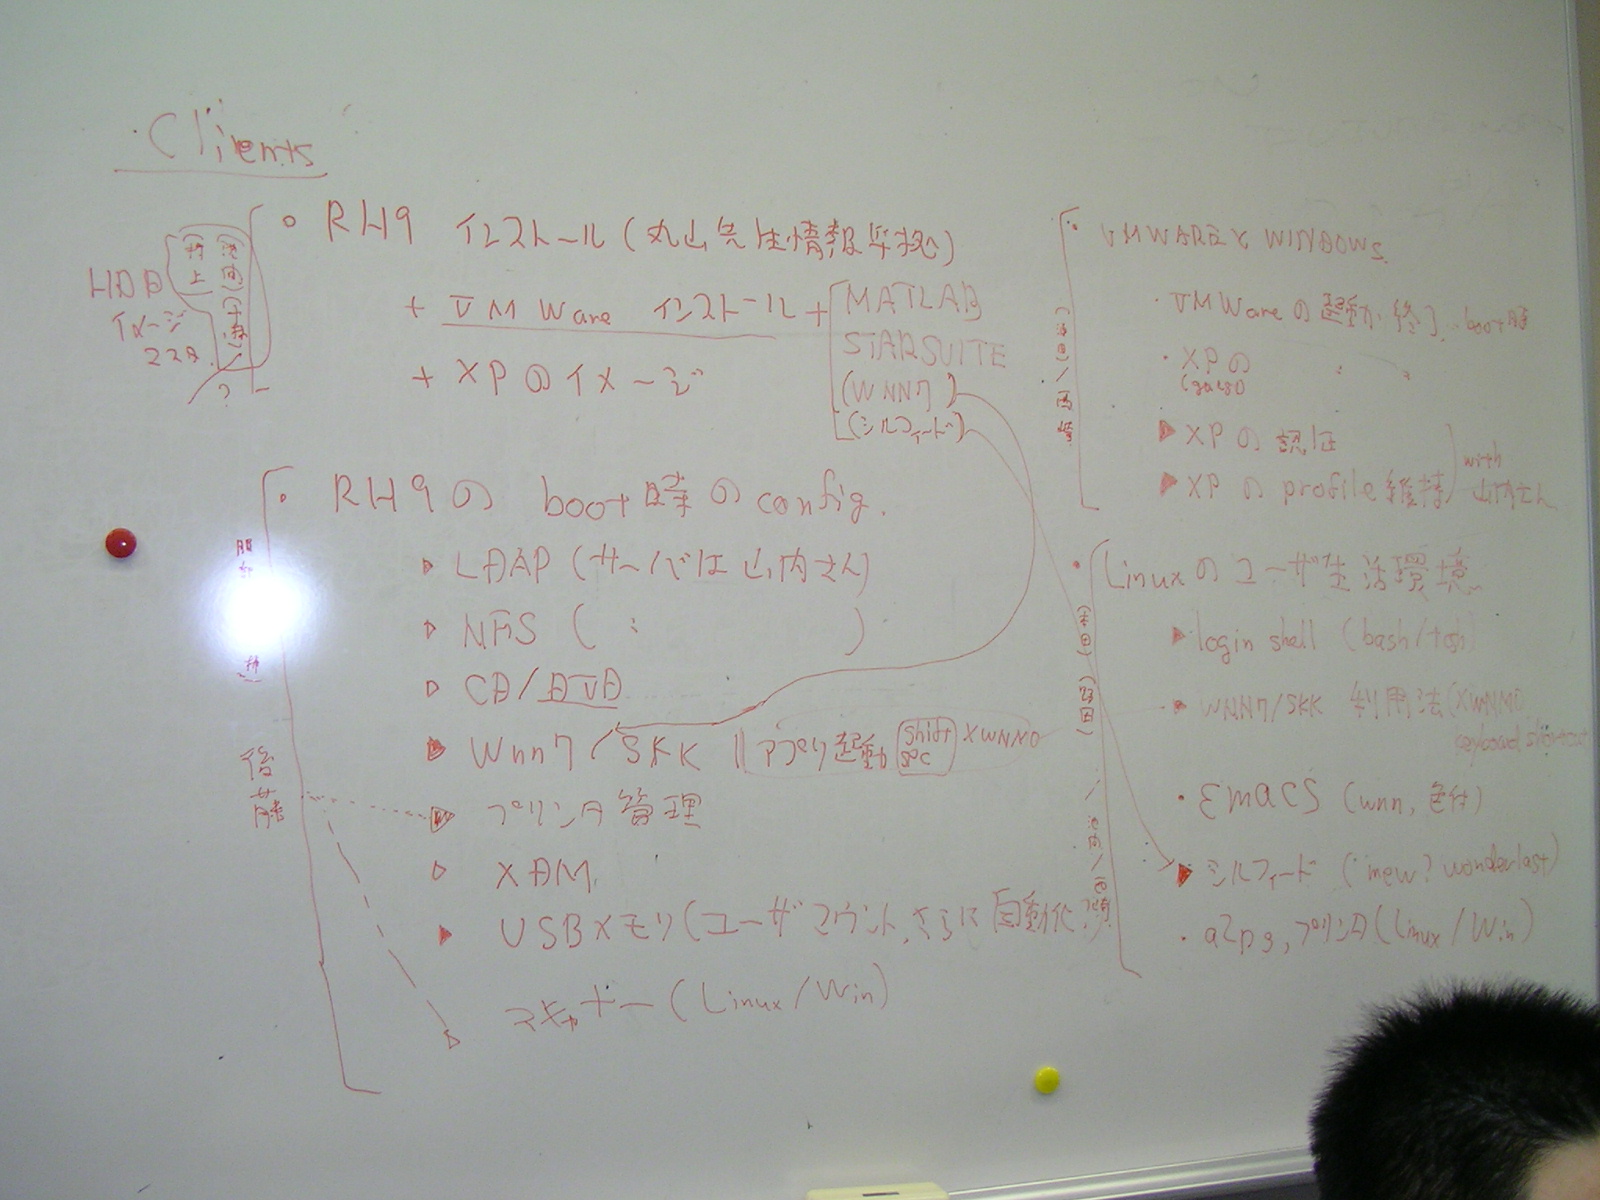 Clients
○ RH9 インストール (丸山先生情報準拠)
HDD
イメージ
22日
村上
?
+ VMWare インストール + MATLAB
STARSUITE
(WNN7)
(シルフィード)
+ XPのイメージ
・ RH9の boot時のconfig.
▷ LDAP (サーバは山内さん)
▷ NFS ( : )
▷ CD/DVD
▶ Wnn7 / SKK || アプリ起動 shift spc XWNMO
後藤
▷ プリンタ管理
▷ XDM
▶ USBメモリ (ユーザマウント,さらに自動化)
▷ スキャナー (Linux/Win)
・ VMWAREとWINDOWS
・VMWareの起動・終了 boot時
・XPの
▶ XPの認証
▶ XPのprofile維持
with
山内さん
・ Linuxのユーザ生活環境
▶ login shell (bash/tcsh)
▶ WNN7/SKK 利用法 (XWNMO
keyboard shortcut
・ EMACS (wnn, 色付)
▶ シルフィード (mew? wonderlast)
・ a2ps, プリンタ (Linux/Win)